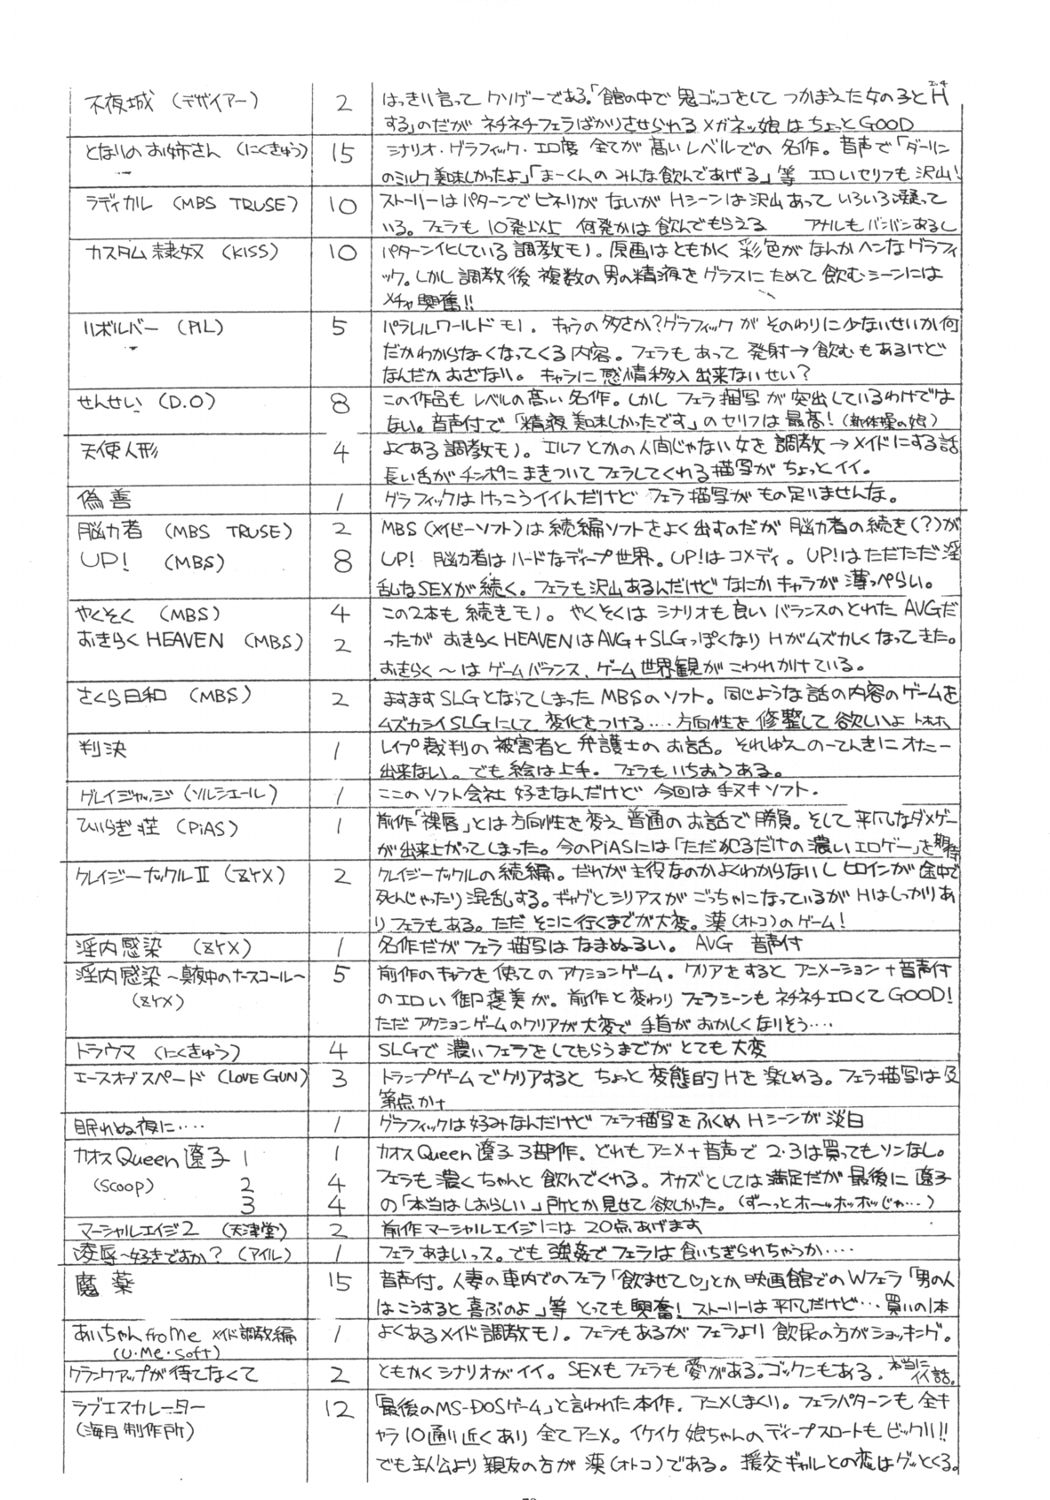 不夜城 (デザイアー) 2 はっきり言ってクソゲーである。「館の中で鬼ゴッコをしてつかまえた女の子とH
する」のだがネチネチフェラばかりさせられるメガネッ娘はちょっとGOOD
となりのお姉さん (にくきゅう) 15 シナリオ・グラフィック・エロ度 全てが高いレベルでの名作。音声で「ダーリン
のミルク美味しかったよ」「まーくんのみんな飲んであげる」等 エロいセリフも沢山!
ラディカル (MBS TRUSE) 10 ストーリーはパターンでヒネリがないがHシーンは沢山あっていろいろ凝って
いる。フェラも10発以上 何発かは飲んでもらえる アナルもバンバンあるし
カスタム隷奴 (KISS) 10 パターン化している調教モノ。原画はともかく彩色がなんかヘンなグラフィ
ック。しかし調教後複数の男の精液をグラスにためて飲むシーンには
メチャ興奮!!
リボルバー (PIL) 5 パラレルワールドモノ。キャラの多さか?グラフィックがそのわりに少ないせいか何
だかわからなくなってくる内容。フェラもあって発射→飲むもあるけど
なんだかおざなり。キャラに感情移入出来ないせい?
せんせい (D.O) 8 この作品もレベルの高い名作。しかしフェラ描写が突出しているわけでは
ない。音声付で「精液美味しかったです」のセリフは最高! (新体操の娘)
天使人形 4 よくある調教モノ。エルフとかの人間じゃない女を調教→メイドにする話
長い舌がチンポにまきついてフェラしてくれる描写がちょっとイイ。
偽善 1 グラフィックはけっこうイイんだけどフェラ描写がもの足りませんな。
脳力者 (MBS TRUSE) 2 MBS (メイビーソフト) は続編ソフトをよく出すのだが脳力者の続き(?)が
UP! (MBS) 8 UP! 脳力者はハードなディープ世界。UP!はコメディ。UP!はただただ淫
乱なSEXが続く。フェラも沢山あるんだけどなにかキャラが薄っぺらい。
やくそく (MBS) 4 この2本も続きモノ。やくそくはシナリオも良いバランスのとれたAVGだ
おきらくHEAVEN (MBS) 2 ったがおきらくHEAVENはAVG+SLGっぽくなりHがムズカしくなってきた。
おきらく〜はゲームバランス、ゲーム世界観がこわれかけている。
さくら日和 (MBS) 2 ますますSLGとなってしまったMBSのソフト。同じような話の内容のゲームを
ムズカシイSLGにして変化をつける‥‥方向性を修整して欲しいよトホホ
判決 1 レイプ裁判の被害者と弁護士のお話。それゆえのーてんきにオナニー
出来ない。でも絵は上手。フェラもいちおうある。
グレイジャッジ (ソルシエール) 1 ここのソフト会社好きなんだけど今回は手ヌキソフト.
ひいらぎ荘 (PiAS) 1 前作「裸唇」とは方向性を変え普通のお話で勝負。そして平凡なダメゲー
が出来上がってしまった。今のPiASには「ただ犯るだけの濃いエロゲー」を期待
クレイジーナックルII (ZYX) 2 クレイジーナックルの続編。だれが主役なのかよくわからないしヒロインが途中で
死んじゃったり混乱する。ギャグとシリアスがごっちゃになっているがHはしっかりあ
りフェラもある。ただそこに行くまでが大変。漢(オトコ)のゲーム!
淫内感染 (ZYX) 1 名作だがフェラ描写はなまぬるい。AVG 音声付
淫内感染〜真夜中のナースコール〜 5 前作のキャラを使ってのアクションゲーム。クリアをするとアニメーション+音声付
(ZYX) のエロい御褒美が。前作と変わりフェラシーンもネチネチエロくてGOOD!
ただアクションゲームのクリアが大変で手首がおかしくなりそう‥‥
トラウマ (にくきゅう) 4 SLGで濃いフェラをしてもらうまでがとても大変
エースオブスペード (LOVE GUN) 3 トランプゲームでクリアするとちょっと変態的Hを楽しめる。フェラ描写は及
第点かナ
眠れぬ夜に‥‥ 1 グラフィックは好みなんだけどフェラ描写をふくめHシーンが淡白
カオスQueen遼子 1 1 カオスQueen遼子3部作。どれもアニメ+音声で2・3は買ってもソンなし。
(SCOOP) 2 4 フェラも濃くちゃんと飲んでくれる。オカズとしては満足だが最後に遼子
3 4 の「本当はしおらしい」所とか見せて欲しかった。(ず〜っとホ〜ッホッホッじゃ‥‥)
マーシャルエイジ2 (天津堂) 2 前作マーシャルエイジには20点あげます
凌辱〜好きですか? (アイル) 1 フェラあまいっス。でも強姦でフェラは食いちぎられちゃうか‥‥
魔薬 15 音声付。人妻の車内でのフェラ「飲ませて♡」とか映画館でのWフェラ「男の人
はこうすると喜ぶのよ」等とっても興奮!ストーリーは平凡だけど‥‥買いの1本
あいちゃんfroMe メイド調教編 1 よくあるメイド調教モノ。フェラもあるがフェラより飲尿の方がショッキング。
(U・Me・Soft)
クランクアップが待てなくて 2 ともかくシナリオがイイ。SEXもフェラも愛がある。ゴックンもある。本当にイイ話。
ラブエスカレーター 12 「最後のMS-DOSゲーム」と言われた本作。アニメしまくり。フェラパターンも全キ
(海月製作所) ャラ10通り近くあり全てアニメ。イケイケ娘ちゃんのディープスロートもビックリ!!
でも主人公より親友の方が漢(オトコ)である。援交ギャルとの恋はグッとくる。